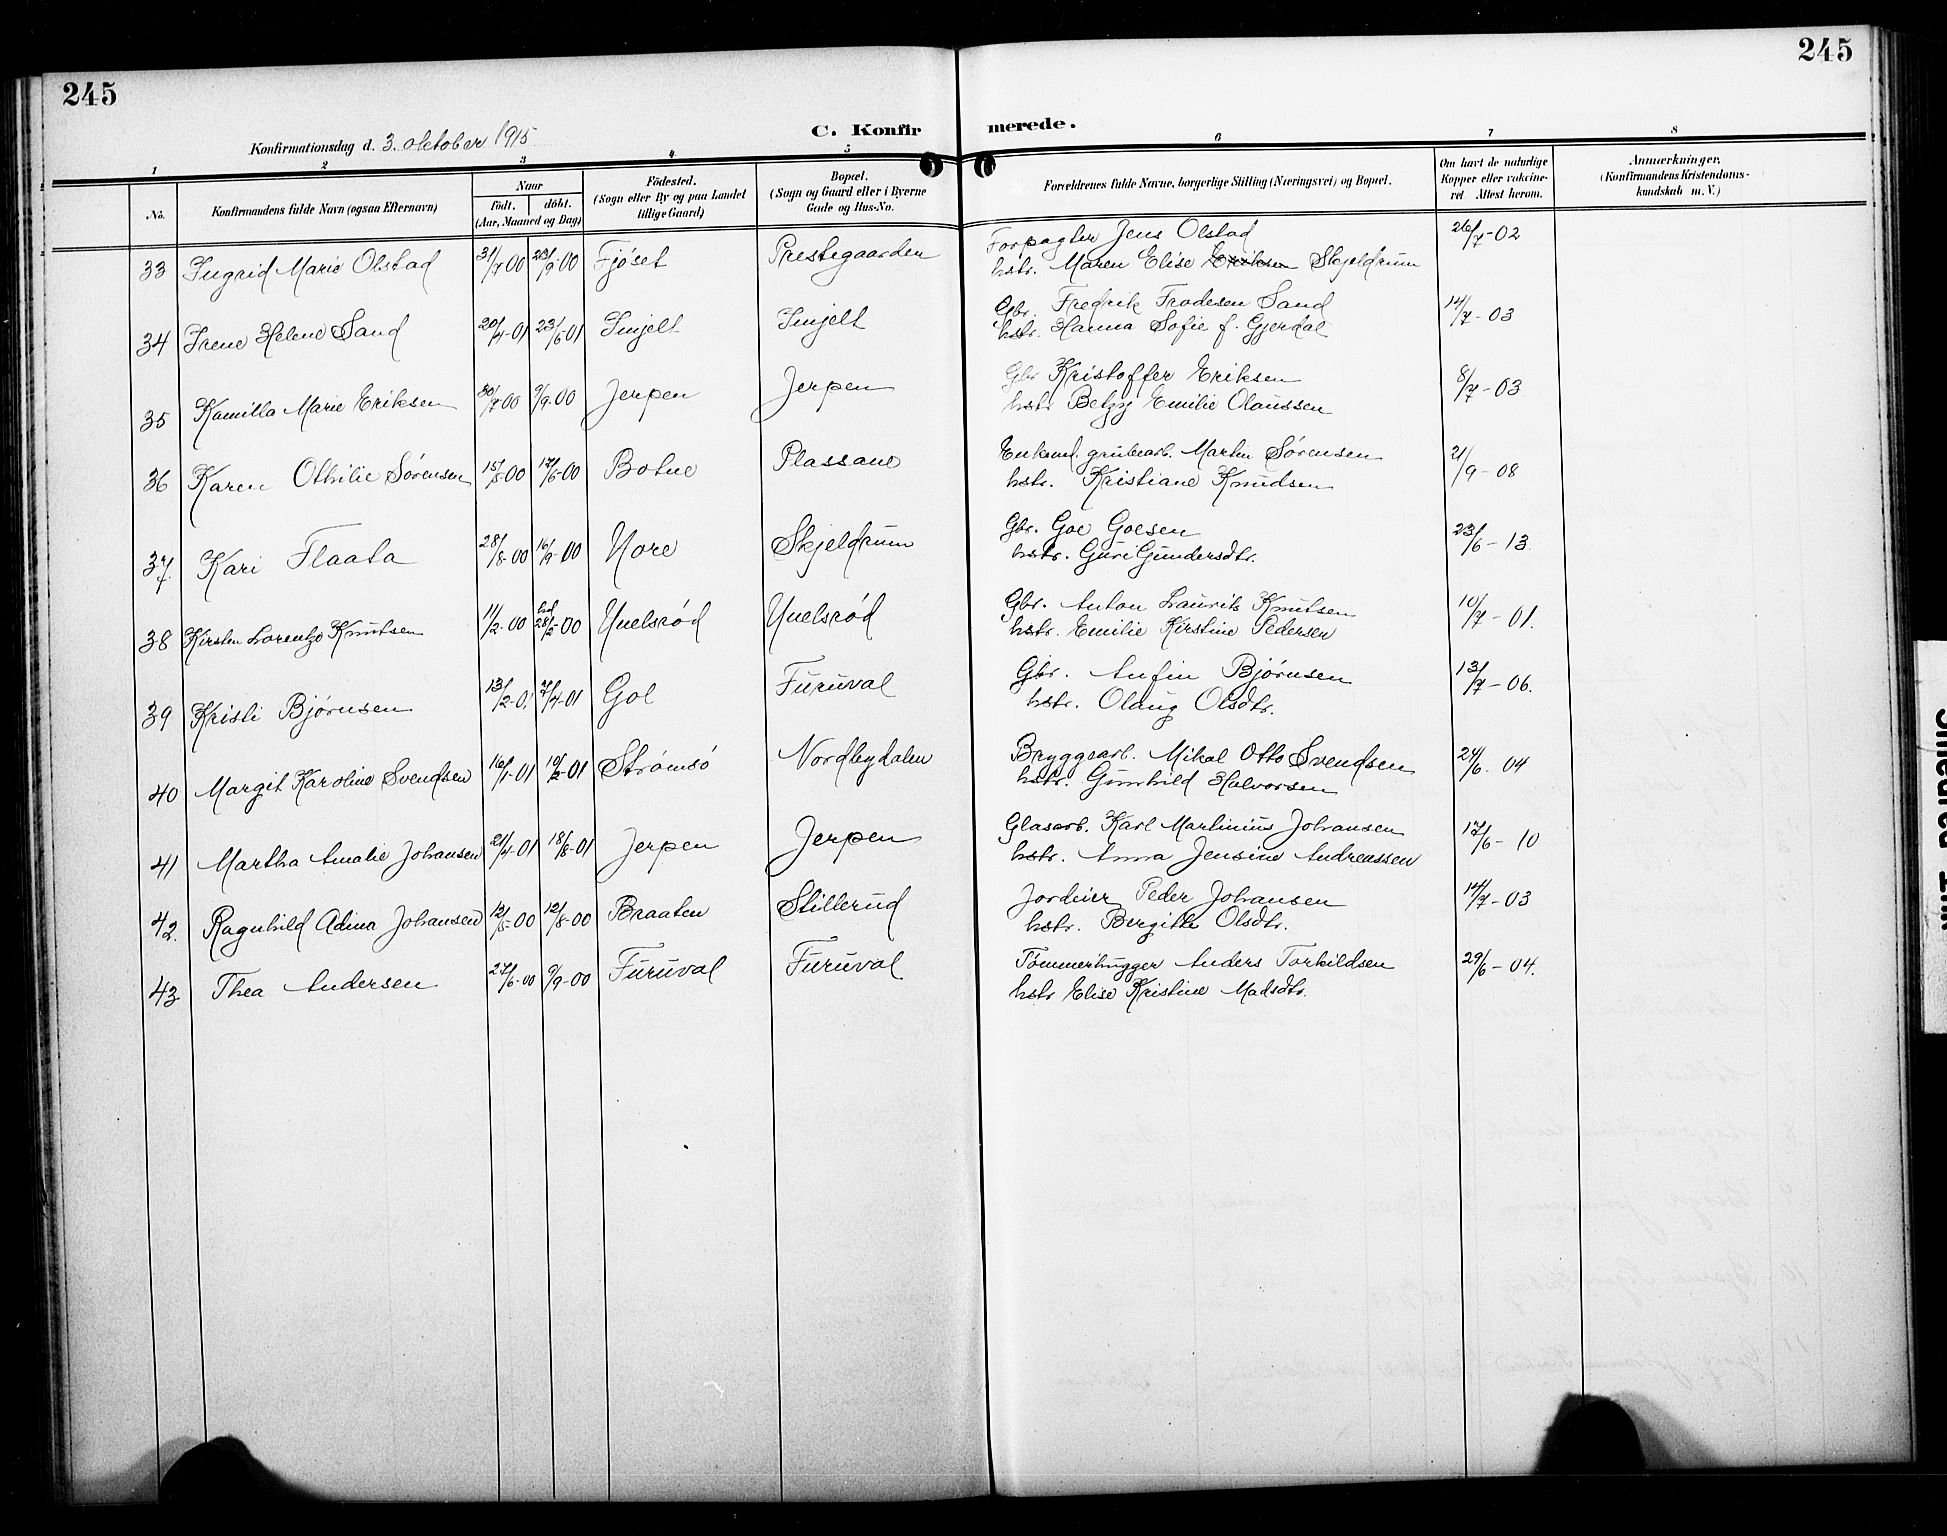 245
245
C. Konfirmerede.
Konfirmationsdag d. 3. oktober 1915
1 2 3 4 5 6 7 8
No. Konfirmandens fulde Navn (ogsaa Efternavn) Naar født. døbt. (Aar, Maaned og Dag) Fødested. (Sogn eller By og paa Landet tillige Gaard) Bopæl. (Sogn og Gaard eller i Byerne Gade og Hus-No. Forældrenes fulde Navne, borgerlige Stilling (Næringsvei) og Bopæl. Om havt de naturlige Kopper eller vaccineret Attest herom. Anmærkninger, (Konfirmandens Kristendomskundskab m. V.)
33 Ingrid Marie Olstad 31/7-00 23/9-00 Fjøset Prestegaarden Forpagter Jens Olstad 26/7-02
hstr. Maren Elise Eriksen Skjeldrum
34 Irene Helene Sand 20/4-01 23/6-01 Smjelt Smjelt Gbr. Fredrik Frodesen Sand 14/7-03
hstr. Hanna Sofie f. Gjerdal
35 Kamilla Marie Eriksen 30/7-00 9/9-00 Jerpen Jerpen Gbr Kristoffer Eriksen 8/7-03
hstr Betzy Emilie Olaussen
36 Karen Othilie Sørensen 15/5-00 17/6-00 Botne Plassane Enkemd. grubearb. Martin Sørensen 21/9-08
hstr. Kristiane Knudsen
37. Kari Flaata 28/8-00 16/9-00 Nore Skjeldrum Gbr. Goe Goesen 23/6-13.
hstr. Guri Gundersdtr.
38 Kirsten Lorentze Knutsen 11/2-00 hd 28/2-00 Unelsrød Unelsrød Gbr. Anton Laurits Knutsen 10/7-01.
hstr. Emilie Kirstine Pedersen
39 Kristi Bjørnsen 13/2-01 7/4-01 Gol Furuval Gbr. Anfin Bjørnsen 13/7-06.
hstr. Olaug Olsdtr.
40 Margit Karoline Svendsen 16/1-01 10/2-01 Strømsø Nordbydalen Bryggearb. Mikal Otto Svendsen 24/6-04
hstr. Gunhild Halvorsen
41 Martha Amalie Johansen 21/4-01 18/8-01 Jerpen Jerpen Glasarb. Karl Martinius Johansen 17/6-10
hstr. Anna Jensine Andreassen
42. Ragnhild Adina Johansen 12/5-00 12/8-00 Braaten Stillerud Jordeier Peder Johansen 14/7-03
hstr. Bergitte Olsdtr.
43 Thea Andersen 27/6-00 9/9-00 Furuval Furuval Tømmerhugger Anders Torkildsen 29/6-04.
hstr Elise Kristine Madsdtr.